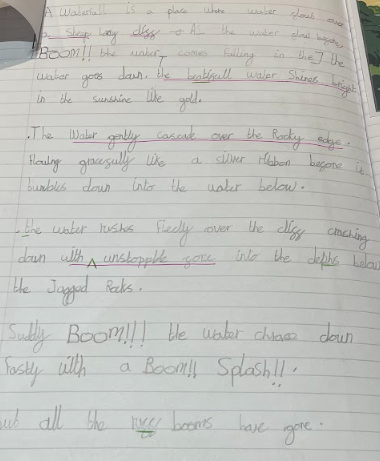 A Waterfall is a place where water flows over
a Steep long cliff As the water flows
BOOM!! the water comes falling in the the
water goes down. the water Shines bright
in the sunshine like gold.
.The Water gently cascade over the Rocky edge.
flowing gracefully like a silver Ribbon before it
tumbles down into the water below.
.the water rushes over the cliff craching
down with unstoppble force into the depths below
the Jagged Rocks.
BOOM!!! the water down
fastly with a BOOM!! Splash!!.
but all the river have gone.